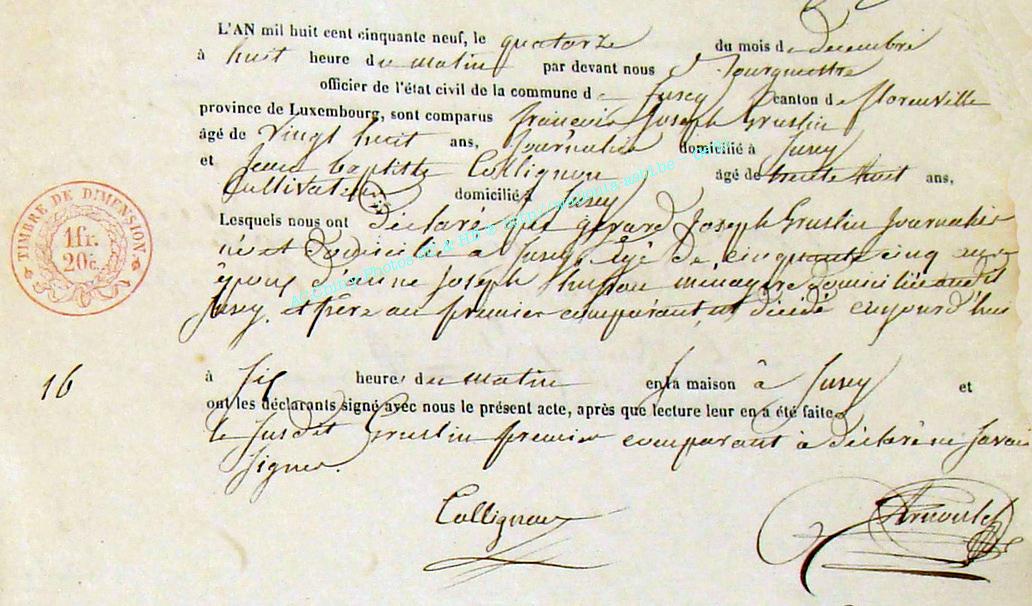 L'AN mil huit cent cinquante neuf, le quatorze du mois de decembre
à huit heure du matin par devant nous
officier de l'état civil de la commune de Jusey canton de florenville
province de Luxembourg, sont comparus francois Joseph Gruslin
âgé de vingt huit ans, Journalier domicilié à Jusey
et Jean baptiste Collignon âgé de trente huit ans,
Cultivateur domicilié à Jusey
Lesquels nous ont déclaré que gerard Joseph Gruslin Journalier
né et domicilié à Jusey agé de cinquante cinq ans
époux d'anne Joseph husson ménagère domiciliée audit
Jusey, et père au premier comparant, est décédé aujourd'hui
TIMBRE DE DIMENSION
1 fr.
20 c.
16
à six heures du matin en la maison à Jusey et
ont les déclarants signé avec nous le présent acte, après que lecture leur en a été faite
le susdit Gruslin premier comparant a déclaré ne savoir
signer.
Collignon
Arnould